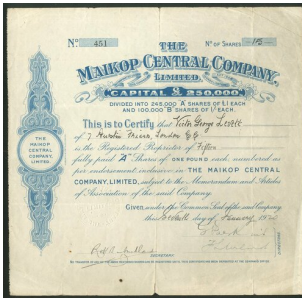 Nº 451 Nº OF SHARES 115
THE
MAIKOP CENTRAL COMPANY,
LIMITED.
CAPITAL £ 250,000.
DIVIDED INTO 245,000 "A" SHARES OF £1 EACH
AND 100,000 "B" SHARES OF 1/- EACH.
This is to Certify that Victor George
of 7 Austin Friars, London E.C.
is the Registered Proprietor of Fifteen
fully paid "A" Shares of ONE POUND each numbered as
per endorsement inclusive in THE MAIKOP CENTRAL
COMPANY, LIMITED, subject to the Memorandum and Articles
of Association of the said Company.
Given under the Common Seal of the said Company
this day of January 19
THE
MAIKOP CENTRAL
COMPANY,
LIMITED.
SECRETARY.